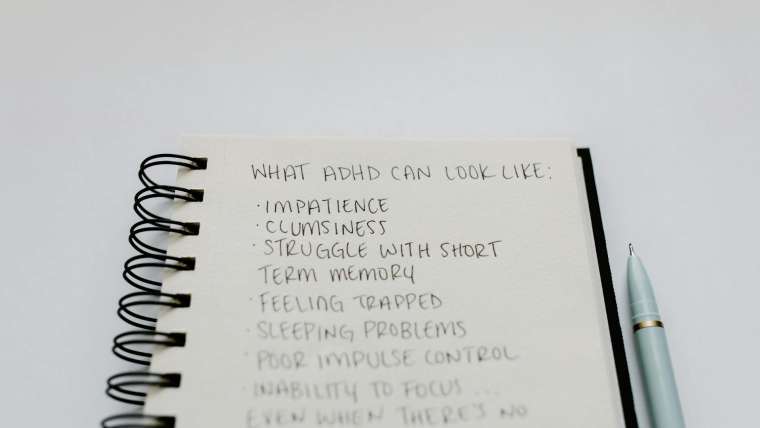 WHAT ADHD CAN LOOK LIKE:
· IMPATIENCE
· CLUMSINESS
· STRUGGLE WITH SHORT
TERM MEMORY
· FEELING TRAPPED
· SLEEPING PROBLEMS
· POOR IMPULSE CONTROL
· INABILITY TO FOCUS ...
EVEN WHEN THERE'S NO